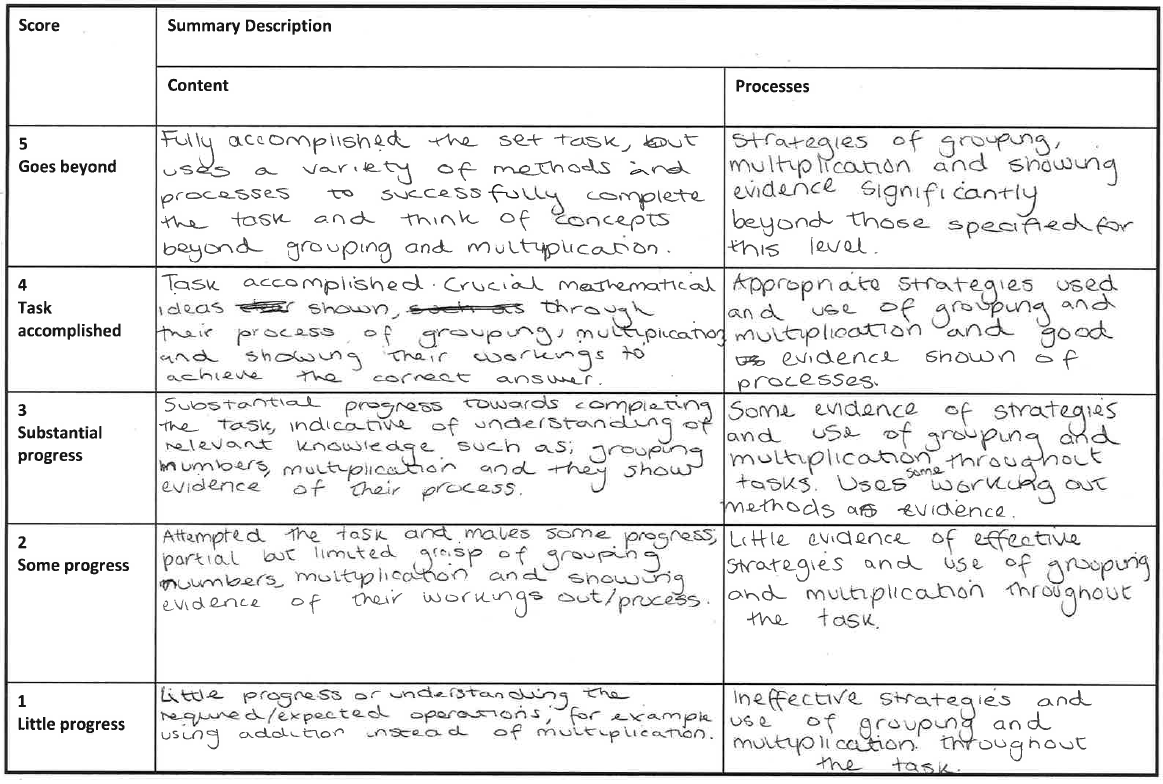 Score
Summary Description
Content
Processes
5
Goes beyond
Fully accomplished the set task, but
uses a variety of methods and
processes to successfully complete
the task and think of concepts
beyond grouping and multiplication.
Strategies of grouping,
multiplication and showing
evidence significantly
beyond those specified for
this level.
4
Task
accomplished
Task accomplished. Crucial mathematical
ideas shown, such as through
their process of grouping, multiplication
and showing their workings to
achieve the correct answer.
Appropriate strategies used
and use of grouping and
multiplication and good
evidence shown of
processes.
3
Substantial
progress
Substantial progress towards completing
the task, indicative of understanding of
relevant knowledge such as; grouping
numbers, multiplication and they show
evidence of their process.
Some evidence of strategies
and use of grouping and
multiplication throughout
tasks. Uses some working out
methods as evidence.
2
Some progress
Attempted the task and makes some progress,
partial but limited grasp of grouping
numbers, multiplication and showing
evidence of their workings out/process.
Little evidence of effective
strategies and use of grouping
and multiplication throughout
the task.
1
Little progress
Little progress or understanding the
required/expected operations, for example
using addition instead of multiplication.
Ineffective strategies and
use of grouping and
multiplication throughout
the task.